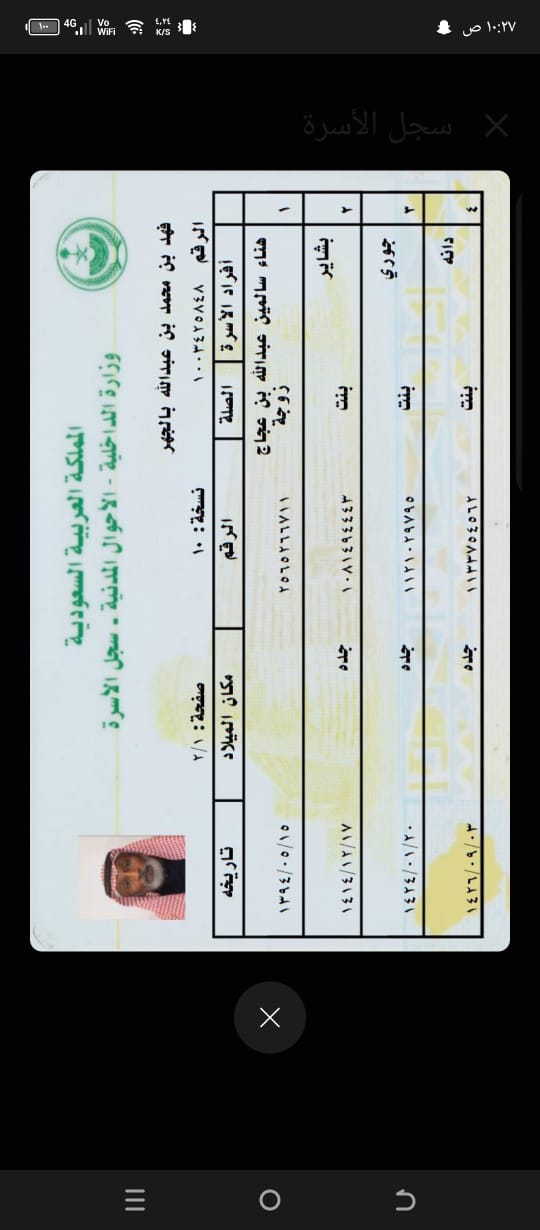 ١٠:٢٧ ص
٤,٢٤ K/S
Vo WiFi
4G
١٠٠
سجل الأسرة
المملكة العربية السعودية
وزارة الداخلية - الأحوال المدنية - سجل الأسرة
فهد بن محمد بن عبدالله بالجهر
الرقم ١٠٠٣٤٢٥٨٤٨ نسخة: ١٠ صفحة: ٢/١
أفراد الأسرة الصلة الرقم مكان الميلاد تاريخه
١ هناء سالمين عبدالله بن عجاج زوجة ٢٥٦٥٢٦٦٧١١ ١٣٩٤/٠٥/١٥
٢ بشاير بنت ١٠٨١٤٩٤٤٤٣ جده ١٤١٤/١٢/١٧
٣ جوري بنت ١١٢١٠٢٩٧٩٥ جده ١٤٢٤/٠١/٢٠
٤ دانه بنت ١١٣٣٧٥٤٥٦٢ جده ١٤٢٦/٠٩/٠٣